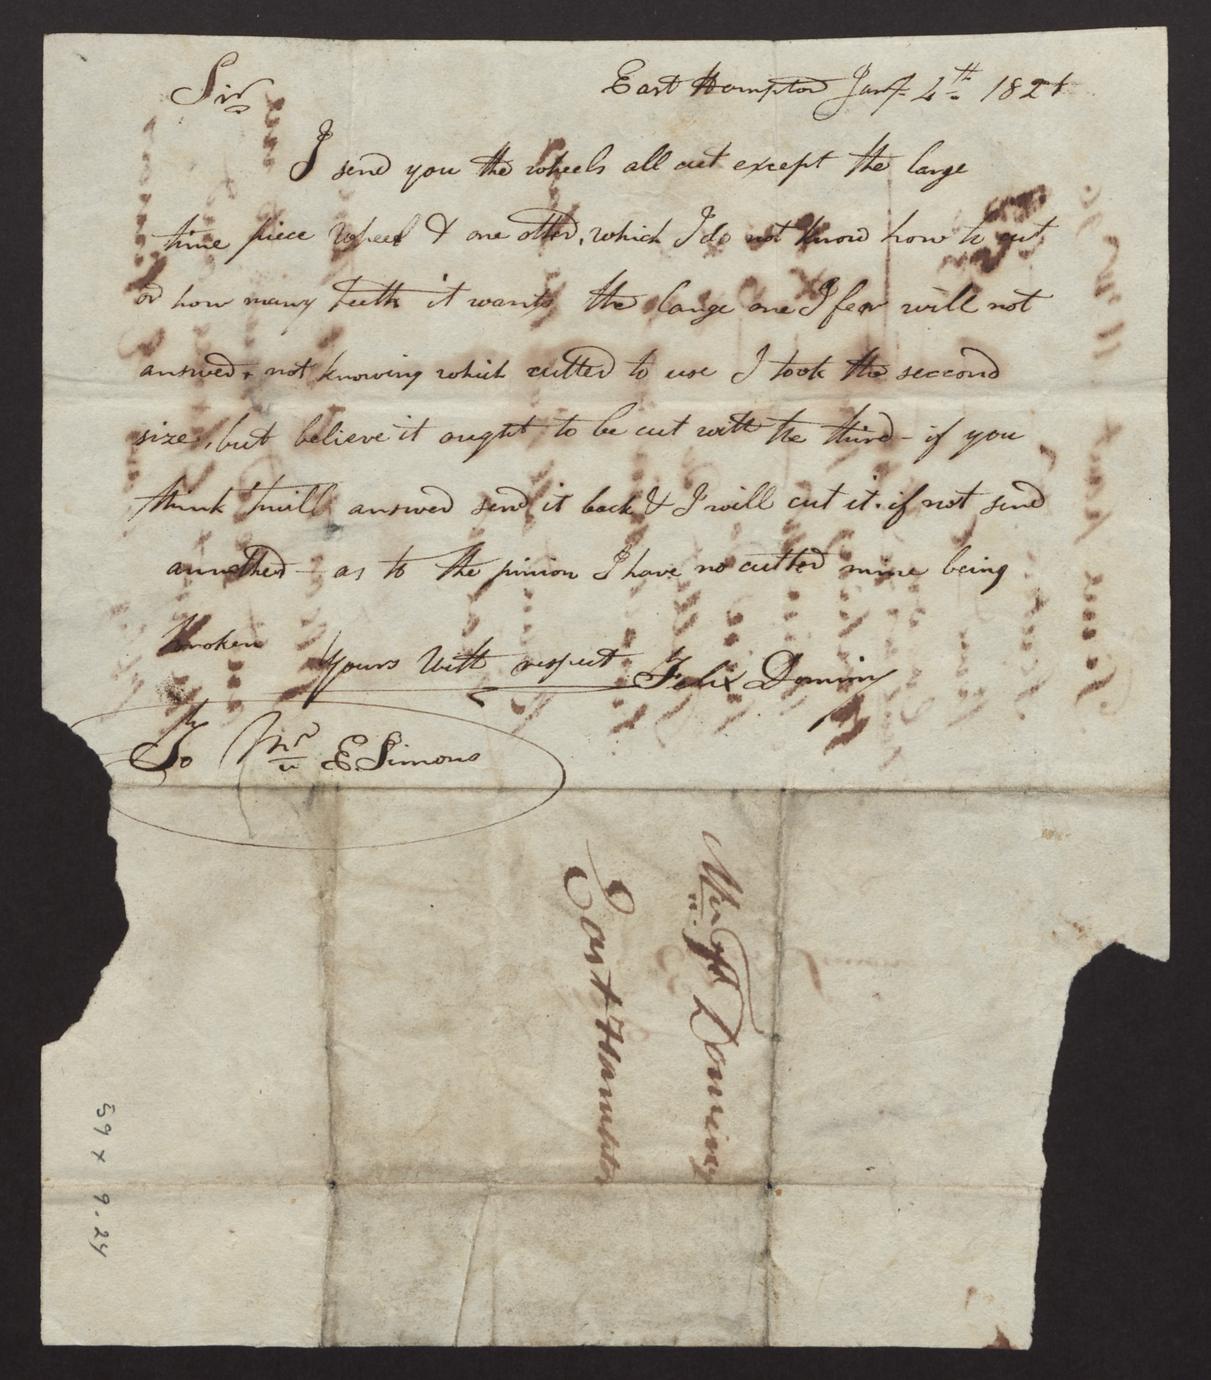 Sir
East Hampton Jany 4th 1821
I send you the wheels all cut except the large
time piece wheel & one other, which I do not know how to cut
or how many teeth it wants the large one I fear will not
answer, not knowing which cutter to use I took the seccond
size, but believe it ought to be cut with the third - if you
think twill answer send it back & I will cut it. if not send
annother - as to the pinion I have no cutter mine being
broken
Yours With respect Felix Dominy
To Mr E. Simons
Mr F Dominy
East Hampton
59 x 9.24